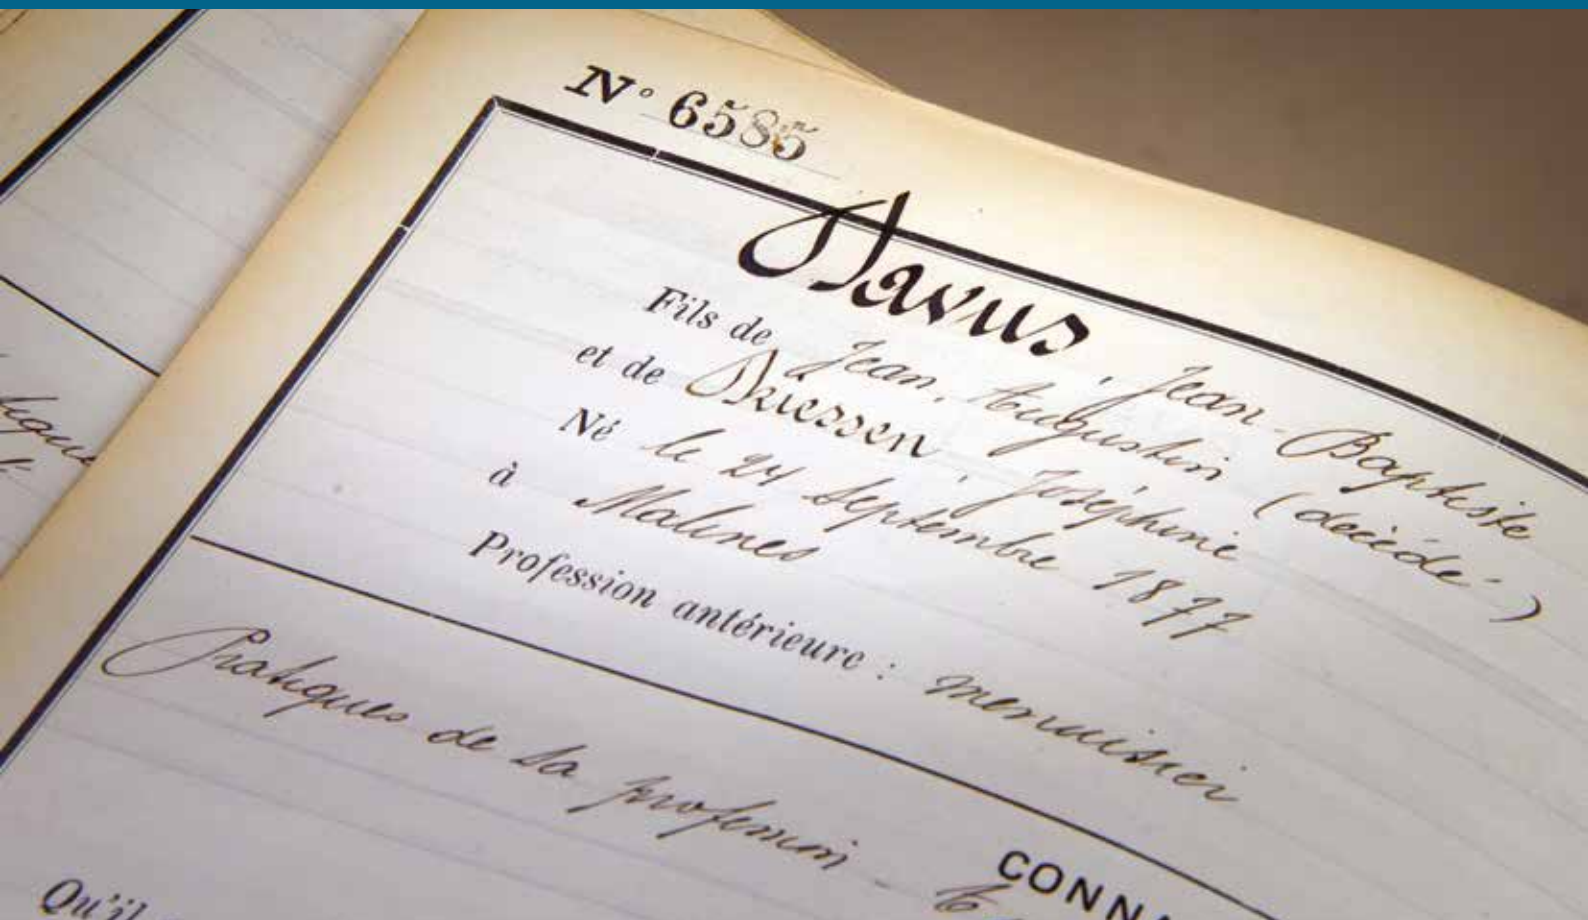 N° 6585
Havus, Jean-Baptiste
Fils de Jean, Augustin (décédé)
et de Driessen, Joséphine
Né le 24 Septembre 1877
à Malines
Profession antérieure : menuisier
Pratiques de sa profession -
CONN
Qu'il